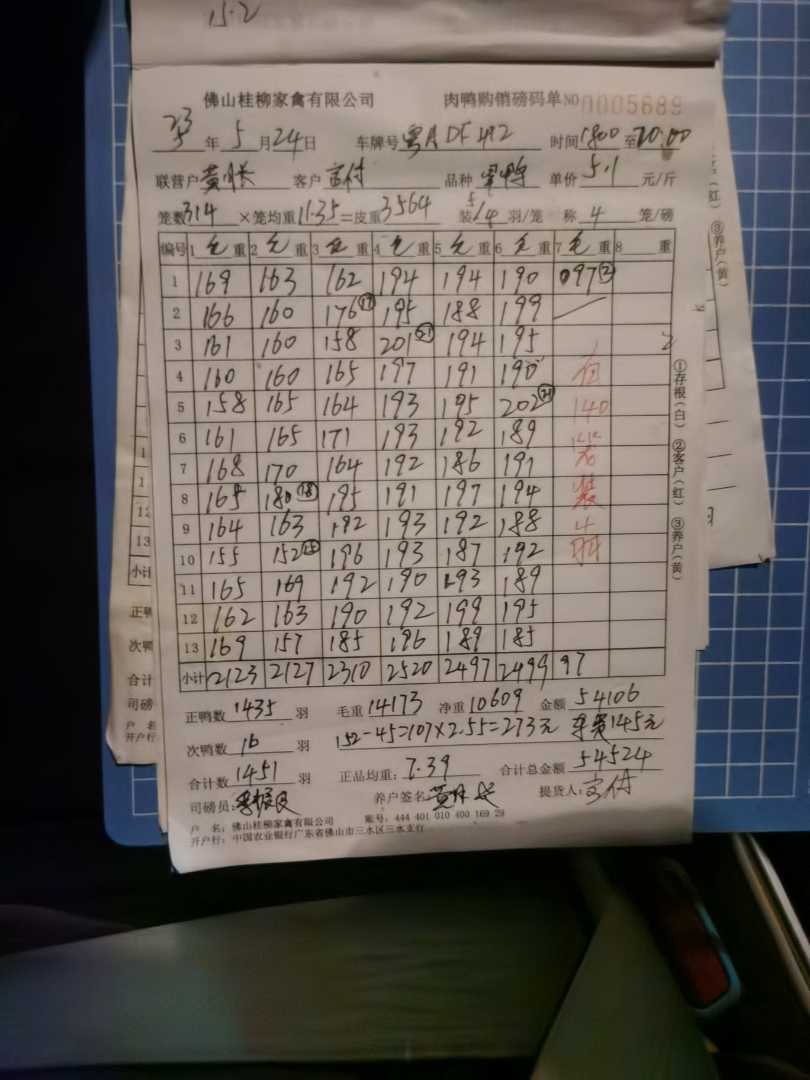 15.2
佛山桂柳家禽有限公司 肉鸭购销磅码单 NO 0005689
23年5月24日 车牌号 粤A DF492 时间1800至20:00
联营户 黄 客户 品种 单价 5.1 元/斤
笼数314×笼均重11.35=皮重3564 装 5/4 羽/笼 称 4 笼/磅
编号 1毛重 2毛重 3毛重 4毛重 5毛重 6毛重 7毛重 8 重
1 169 163 162 194 194 190 097②
2 166 160 176⑰ 195 188 199
3 161 160 158 201㉑ 194 195
4 160 160 165 197 191 190
5 158 165 164 193 195 202
6 161 165 171 193 192 189
7 168 170 164 192 186 191
8 165 180⑱ 195 191 197 194 装
9 164 163 192 193 192 188 4
10 155 152 196 193 187 192
11 165 169 192 190 193 189
12 162 163 190 192 199 195
13 169 157 185 196 189 185
小计 2123 2127 2310 2520 2497 2499 97
正鸭数 1435 羽 毛重 14173 净重 10609 金额 54106
次鸭数 16 羽 152-45=107×2.55=273元 车费145元
合计数 1451 羽 正品均重: 7.39 合计总金额 54524
司磅员: 养户签名 黄 提货人:
户 名: 佛山桂柳家禽有限公司 账号: 444 401 010 400 169 29
开户行: 中国农业银行广东省佛山市三水区三水支行
①存根(白) ②客户(红) ③养户(黄)
(红) ③养户(黄)
小计
正鸭
次鸭
合计
司磅
户 名
开户行